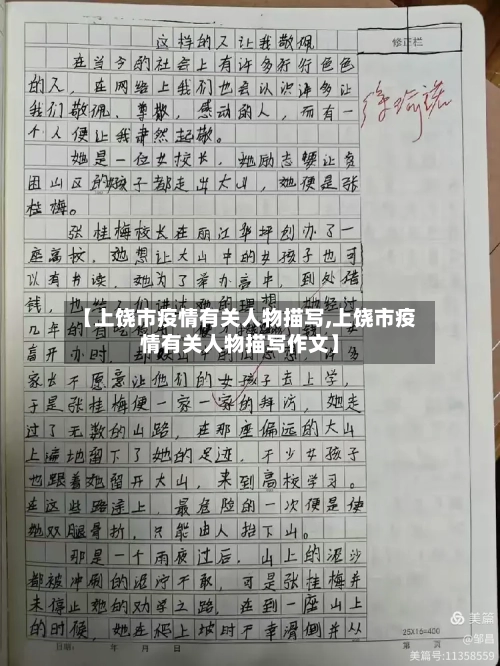 这样的人让我敬佩
修正栏
在当今的社会上有许多形形色色
的人，在网络上我们也会认识许多让
我们敬佩，尊敬，感动的人，而有一
个人便让我肃然起敬。
她是一位女校长，她励志要让贫
困山区的孩子都走出大山，她便是张
桂梅。
张桂梅校长在丽江华坪创办了一
座高校，她想让大山中的女孩子也可
以有书读，她为了举办高中，到处借
钱，也
【上饶市疫情有关人物描写,上饶市疫
情有关人物描写作文】
几年的
高开办时，
家长不愿意让他们的女孩子去上学，
于是张桂梅便一家一家的拜访，她走
过了无数的山路，在那座偏远的大山
上遍地留下了她的足迹，不少女孩子
也跟着她离开大山，来到高校学习。
在这些路途上，最危险的一次便是使
她双腿骨折，只能由人抬下山。
那是一个雨夜过后，山上的泥沙
都被冲刷的泥泞不堪，可是张桂梅并
未停止她的劝学之路，在到一座山上
的时候，她在爬上坡时不幸滑倒并从
日期： 年 月 日
25X16=400
第 页
美篇
@邹昌
美篇号:11358559